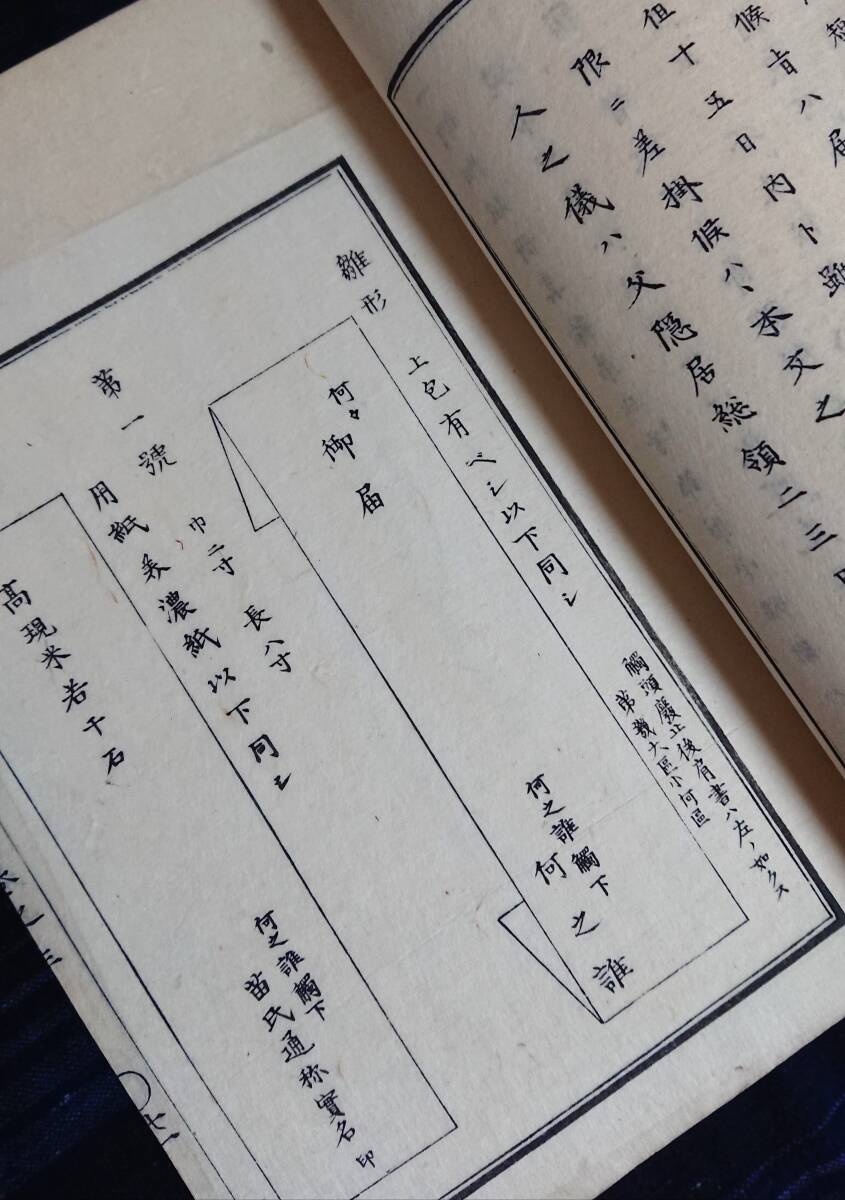 候旨ハ届
但十五日内ト雖
限ニ差掛候ハヽ本文之
人之儀ハ父隠居総領二三
雛形
上包有ベシ以下同シ
觸頭廢止後肩書ハ左ノ如クス
第幾大區小何區
何々御届
何之誰觸下
何之誰
巾二寸 長八寸
第一號
用紙美濃紙以下同シ
何之誰觸下
苗氏通称實名印
高現米若干石